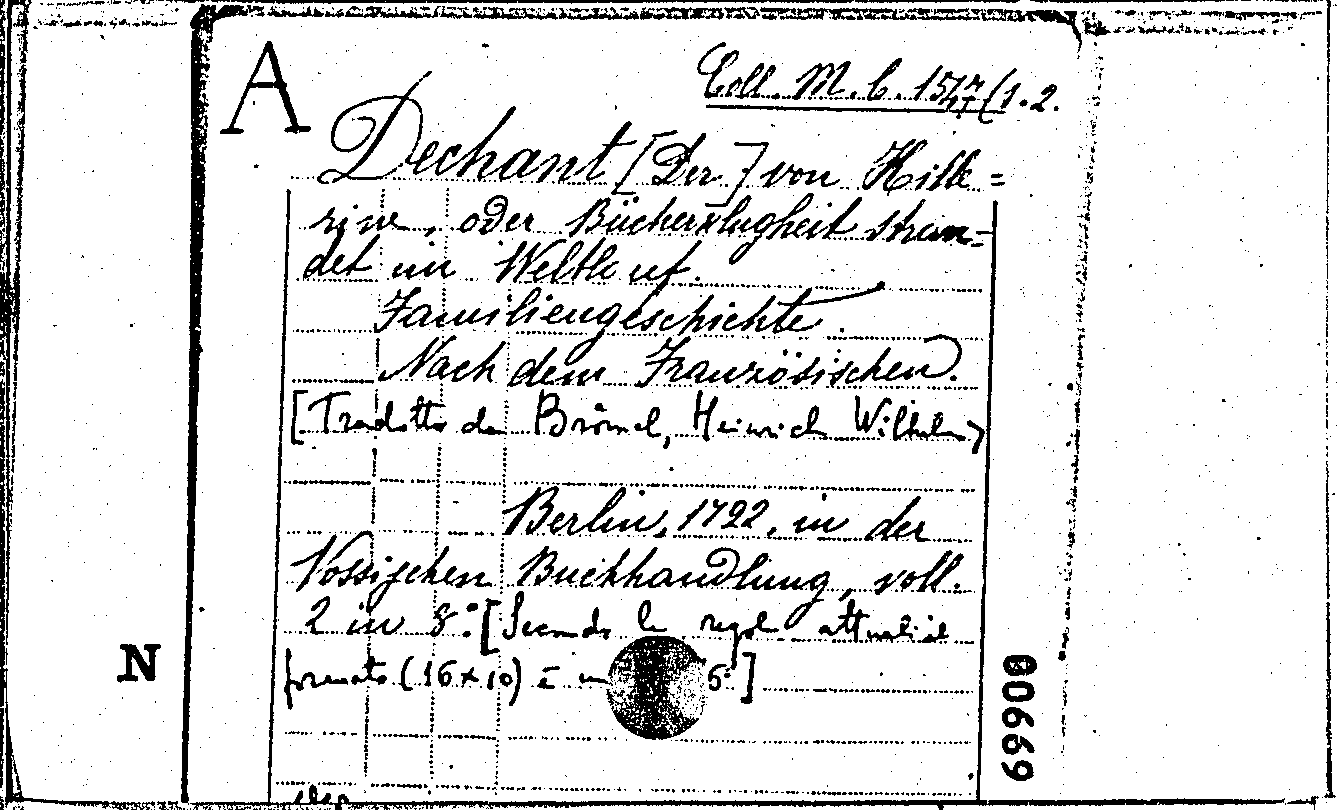 A
Coll. M. C. 1547/(1.2.
Dechant [Der] von Kille=
rine, oder Bücherklugheit stran=
det im Weltlauf.
Familiengeschichte.
Nach dem Französischen.
[Tradotto da Brömel, Heinrich Wilhelm]
Berlin, 1792, in der
Vossischen Buchhandlung, voll.
2 in 8.° [Secondo le regole attuali il
formato (16 x 10) è un 6°]
N
00669